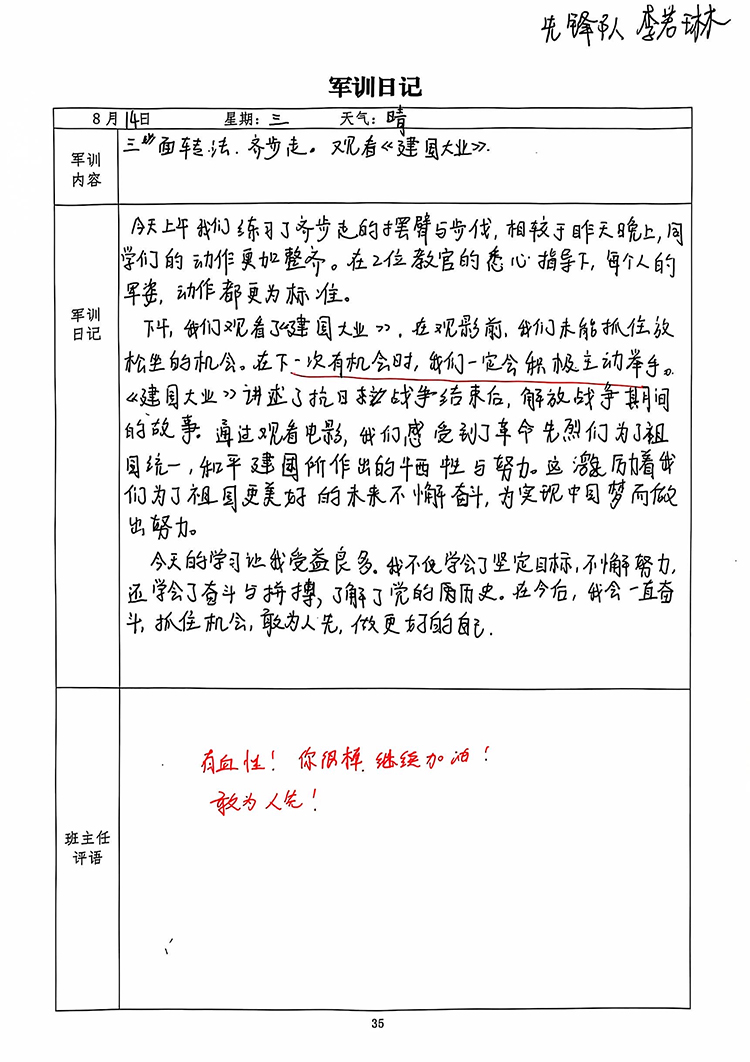 先锋队 李若琳
军训日记
8月14日 星期:三 天气:晴
军训
内容
三面转法、齐步走。观看《建国大业》.
军训
日记
今天上午我们练习了齐步走的摆臂与步伐,相较于昨天晚上,同
学们的动作更加整齐。在2位教官的悉心指导下,每个人的
军姿,动作都更为标准。
下午,我们观看了《建国大业》,在观影前,我们未能抓住放
松坐的机会。在下一次有机会时,我们一定会积极主动举手。
《建国大业》讲述了抗日战争结束后,解放战争期间
的故事.通过观看电影,我们感受到了革命先烈们为了祖
国统一,和平建国所作出的牺牲与努力。这激励着我
们为了祖国更美好的未来不懈奋斗,为实现中国梦而做
出努力。
今天的学习让我受益良多.我不仅学会了坚定目标,不懈努力,
还学会了奋斗与拼搏,了解了党的历史。在今后,我会一直奋
斗,抓住机会,敢为人先,做更好的自己.
班主任
评语
有血性!你很棒.继续加油!
敢为人先!
35